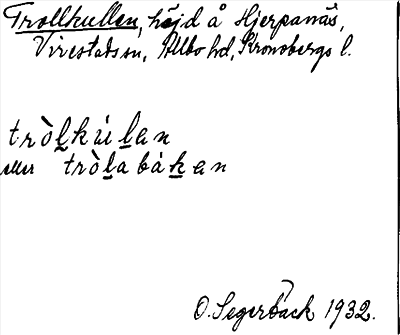 Trollkullen, höjd å Hjerpanäs,
Virestads sn, Allbo hd, Kronobergs l.
tròḻkúḻan
eller tròḻabáḵan
O. Segerbäck 1932.